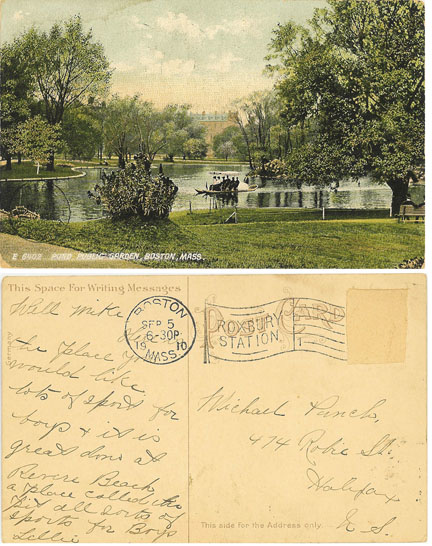 E 6402. POND, PUBLIC GARDEN, BOSTON, MASS.
This Space For Writing Messages
Germany
Well mike
the place you
would like
lots of sport for
boys & it is
great down at
Revere Beach
a place called the
Pit all sorts of
sports for Boys
Lillie
BOSTON
SEP 5
6-30P
1910
MASS.
POST CARD
ROXBURY
STATION.
1
Michael Punch,
474 Robie St.
Halifax
N. S.
This side for the Address only.